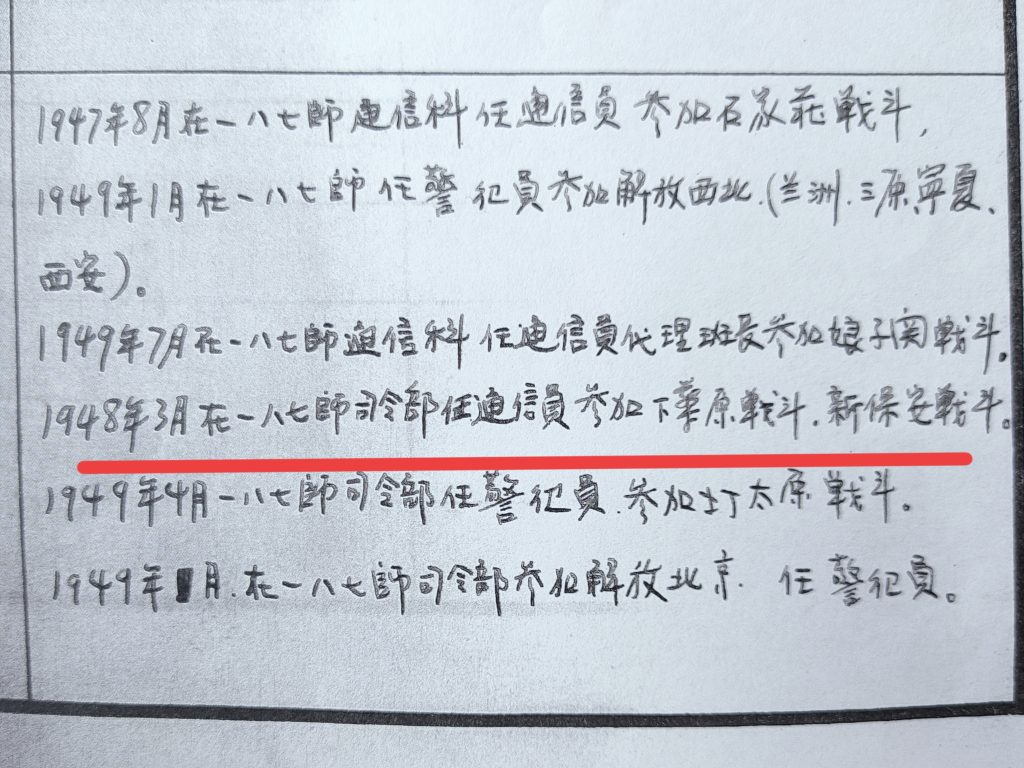 1947年8月在一八七師通信科任通信員参加石家莊戦斗，
1949年1月在一八七師任警犯員参加解放西北.(兰洲.三原寧夏、
西安)。
1949年7月在一八七師通信科任通信員代理班長参加娘子関戦斗。
1948年3月在一八七師司令部任通信員参加下華原戦斗.新保安戦斗。
1949年4月一八七師司令部任警犯員.参加打太原戦斗。
1949年 月.在一八七師司令部参加解放北京.任警犯員。